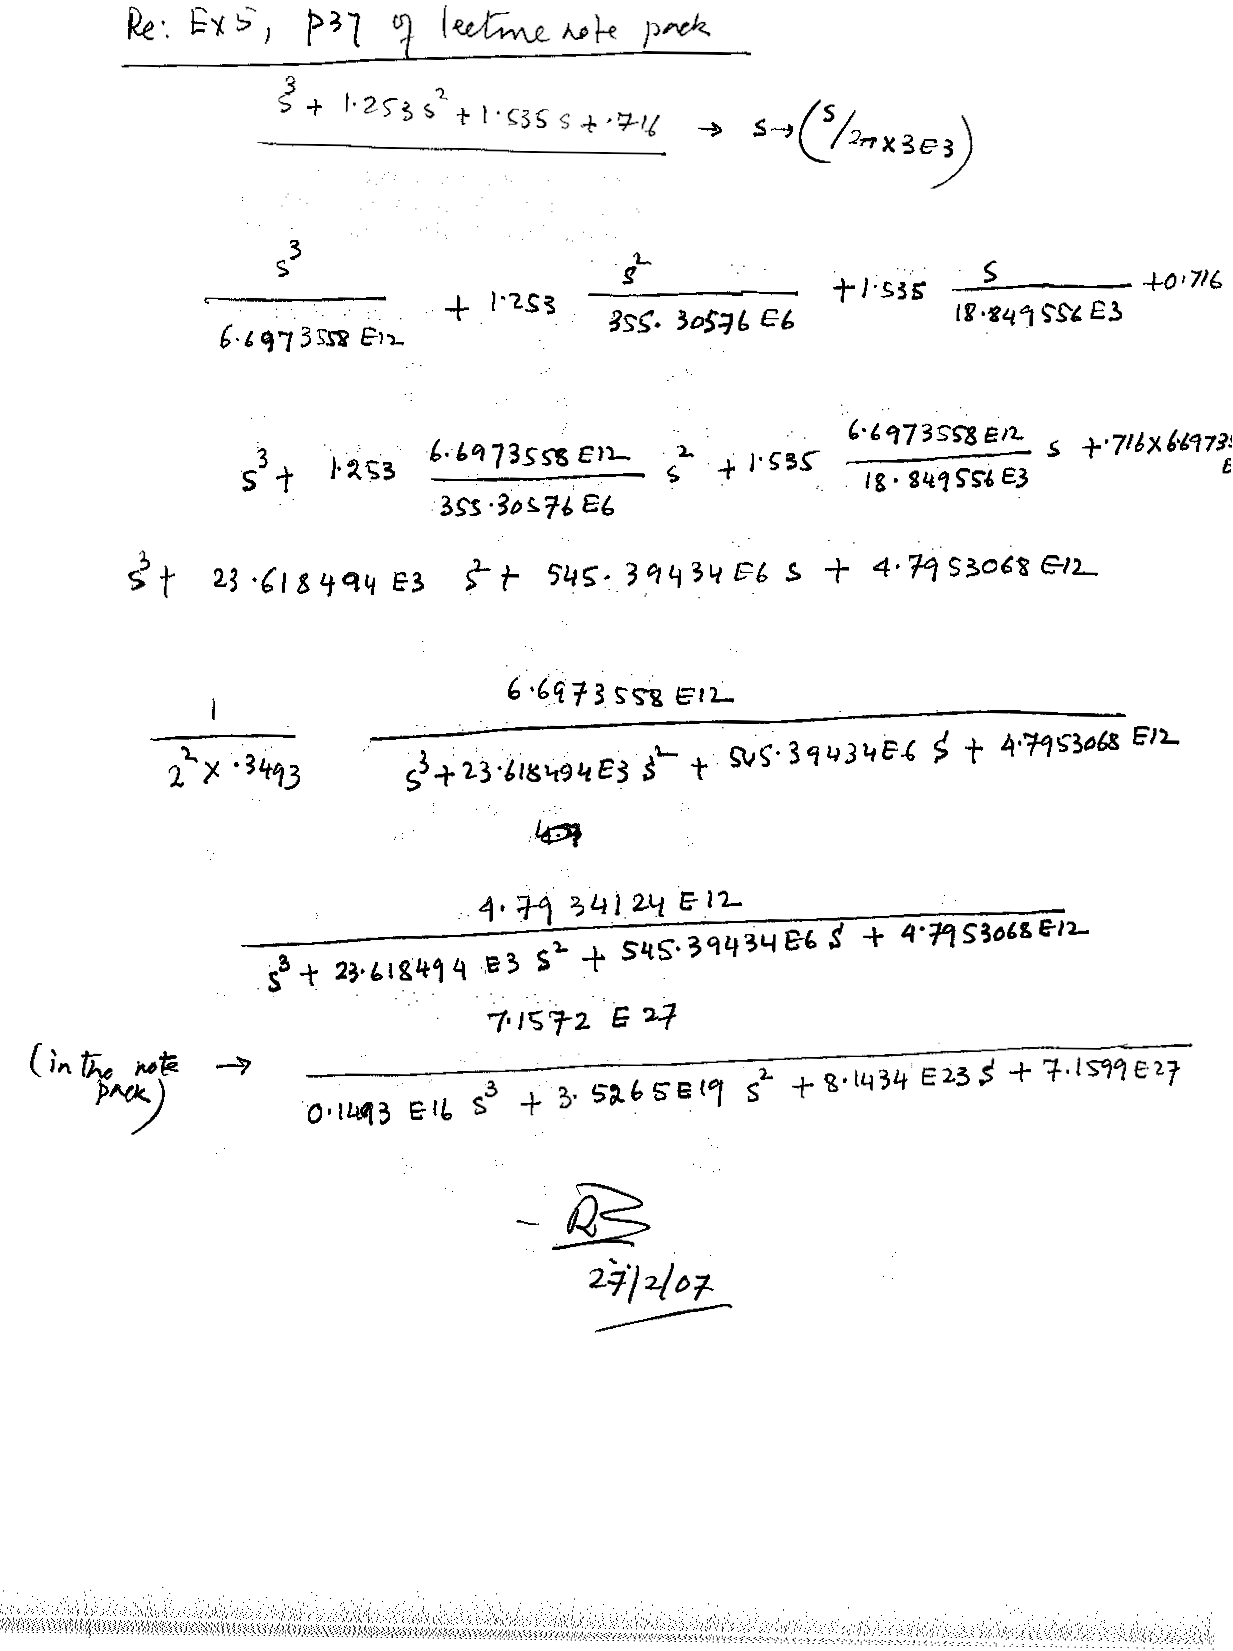 Re: EX5, P37 of lecture note pack
s³ + 1.253 s² + 1.535 s + .716 → s→(s/2π×3E3)
s³/6.6973558 E12 + 1.253 s²/355.30576 E6 + 1.535 s/18.849556 E3 + 0.716
s³ + 1.253 6.6973558 E12/355.30576 E6 s² + 1.535 6.6973558 E12/18.849556 E3 s + .716 × 6.6973
s³ + 23.618494 E3 s² + 545.39434 E6 s + 4.7953068 E12
1/2² × .3493 6.6973558 E12/s³ + 23.618494 E3 s² + 545.39434 E6 s + 4.7953068 E12
4.7934124 E12
s³ + 23.618494 E3 s² + 545.39434 E6 s + 4.7953068 E12
7.1572 E 27
(in the note pack) → 0.1493 E16 s³ + 3.5265 E19 s² + 8.1434 E23 s + 7.1599 E27
- RB
27/2/07